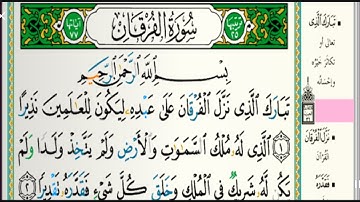 سُورَةُ الْفُرْقَانِ
بِسْمِ اللَّهِ الرَّحْمَٰنِ الرَّحِيمِ
تَبَارَكَ الَّذِي نَزَّلَ الْفُرْقَانَ عَلَىٰ عَبْدِهِ لِيَكُونَ لِلْعَالَمِينَ نَذِيرًا
١ الَّذِي لَهُ مُلْكُ السَّمَاوَاتِ وَالْأَرْضِ وَلَمْ يَتَّخِذْ وَلَدًا وَلَمْ
يَكُن لَّهُ شَرِيكٌ فِي الْمُلْكِ وَخَلَقَ كُلَّ شَيْءٍ فَقَدَّرَهُ تَقْدِيرًا ٢
تَبَارَكَ الَّذِي
تعالى أو
تكاثر خيره
وإحسانه
نَزَّلَ الْفُرْقَانَ
القرآن
فَقَدَّرَهُ